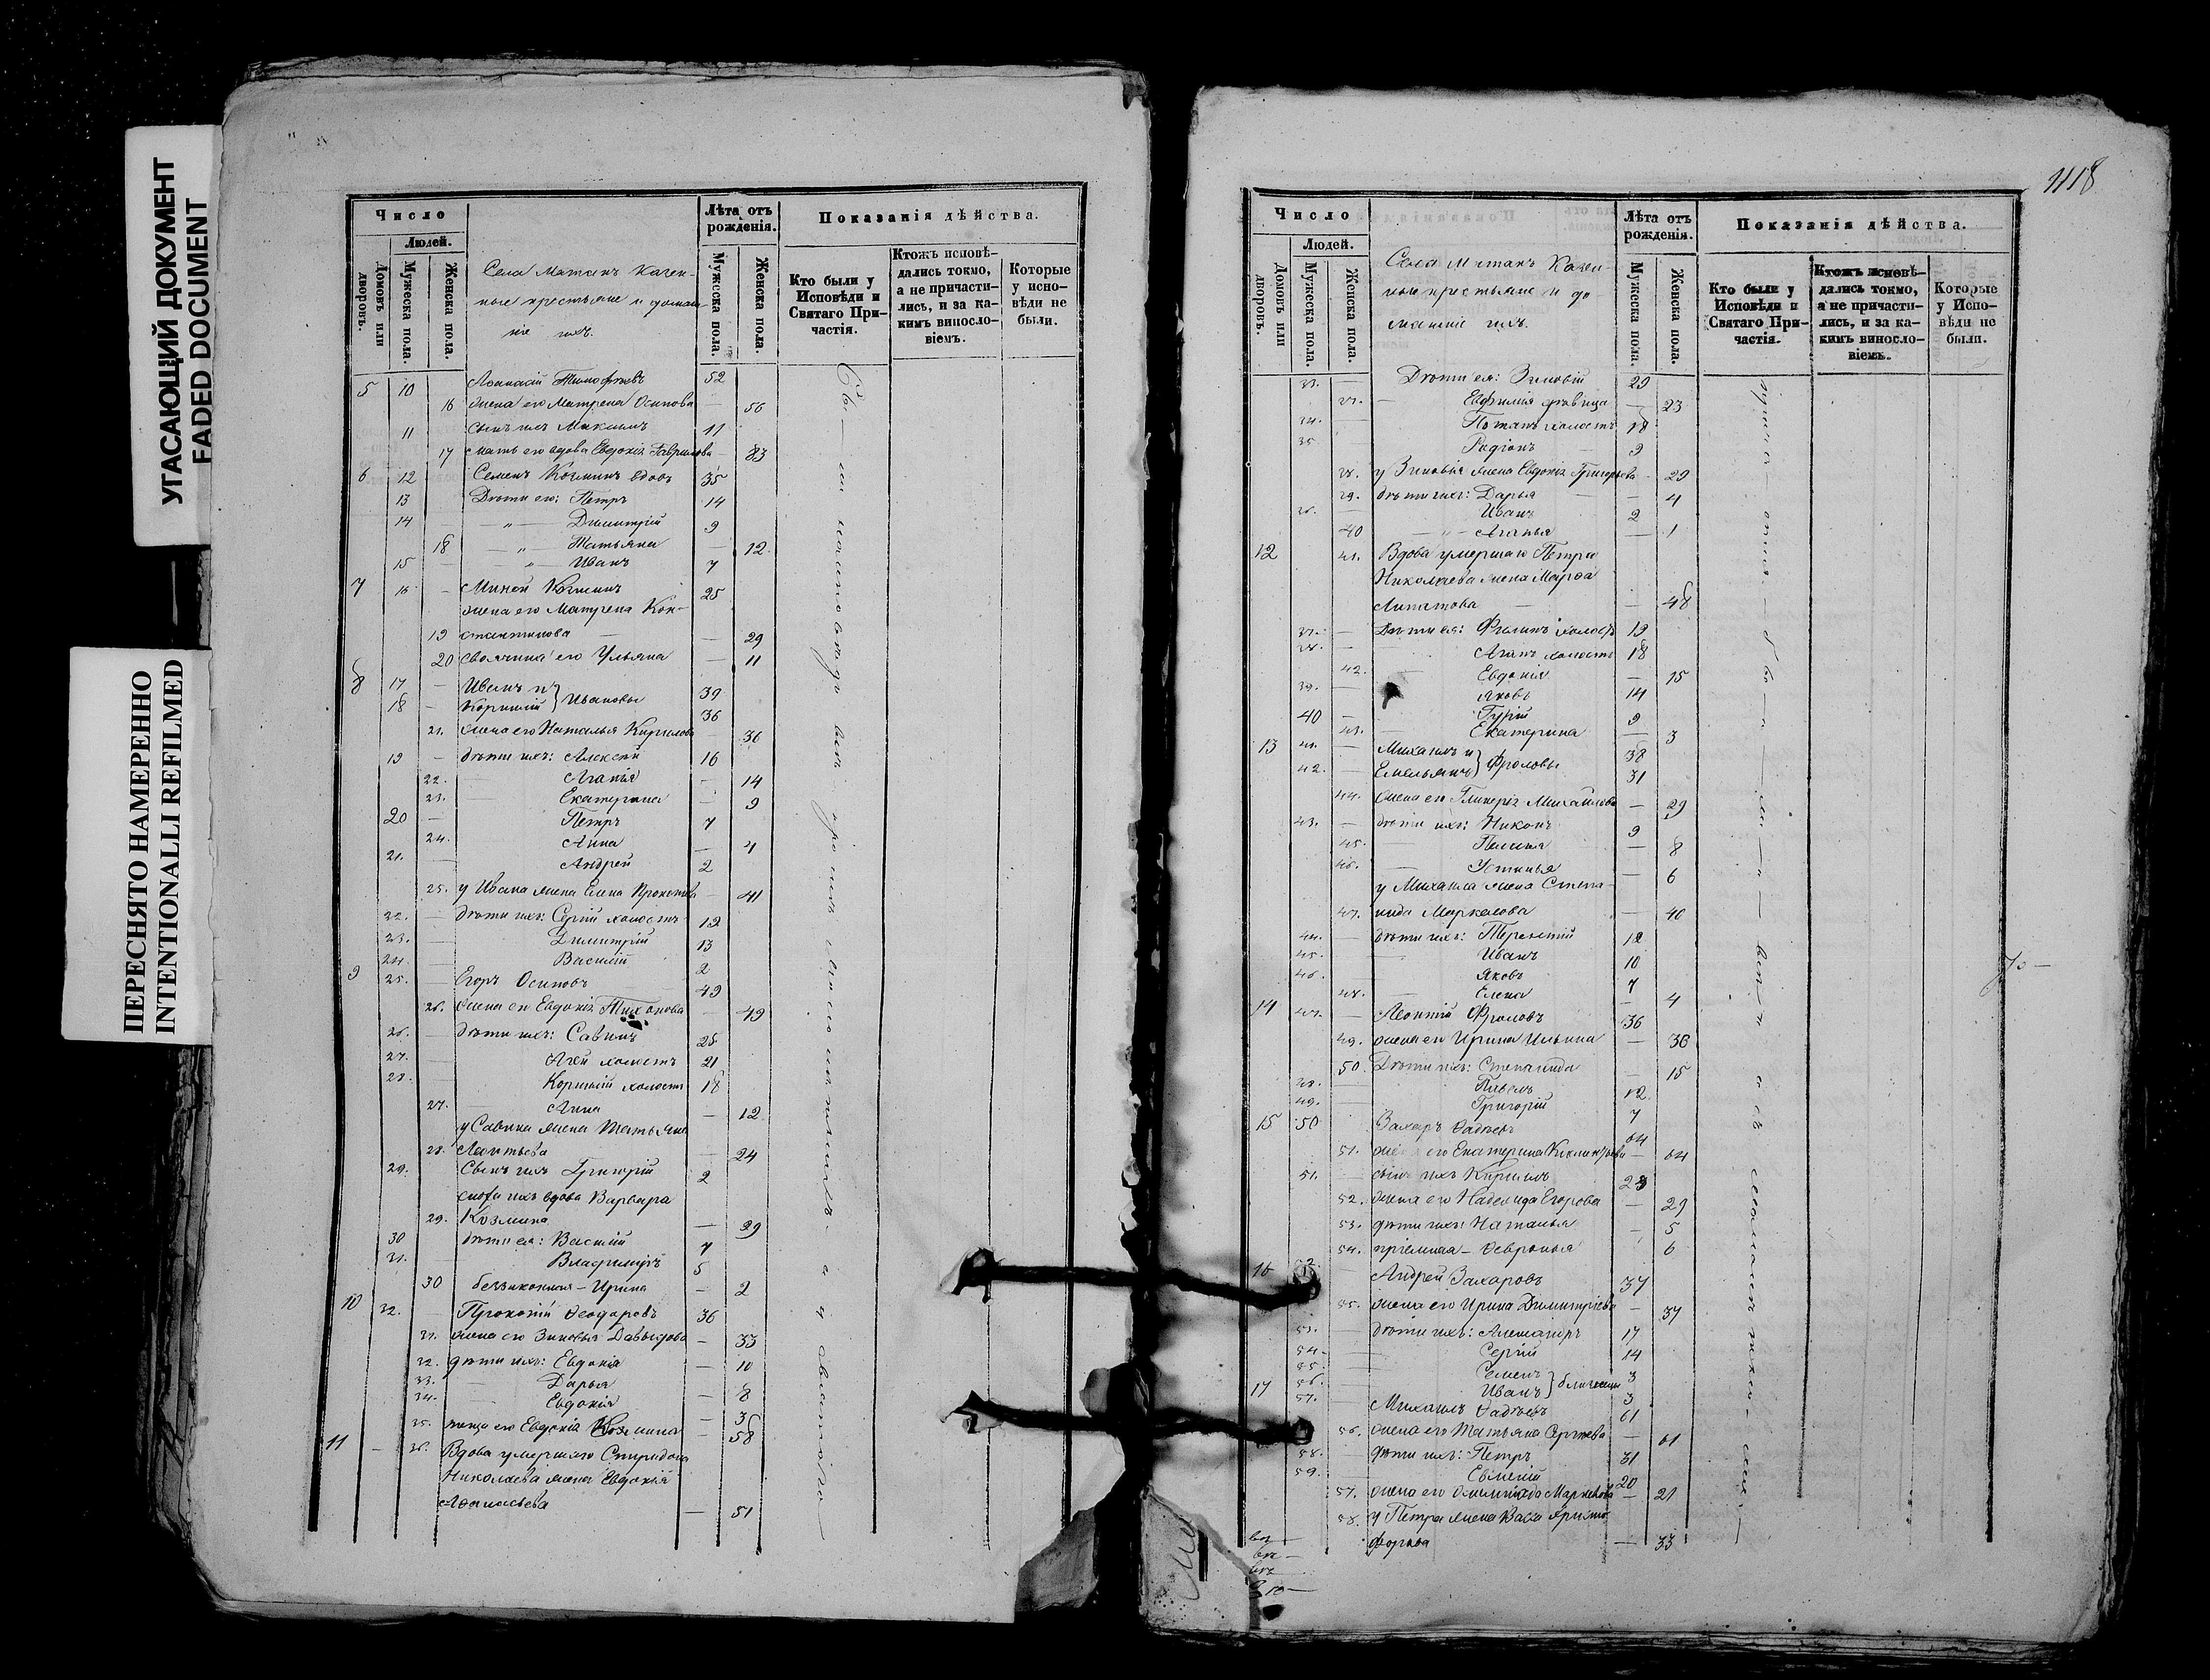 УГАСАЮЩИЙ ДОКУМЕНТ
FADED DOCUMENT
ПЕРЕСНЯТО НАМЕРЕННО
INTENTIONALLI REFILMED
Число
Людей.
Домовъ или дворовъ.
Мужеска пола.
Женска пола.
Села Матакъ Казен-
ные крестьяне и домаш-
ніе ихъ.
Лѣта отъ рожденія.
Мужеска пола.
Женска пола.
Показанія дѣйства.
Кто были у Исповѣди и Святаго При-частія.
Ктожъ исповѣ-дались токмо, а не причасти-лись, и за ка-кимъ винос­ло-віемъ.
Которые у испо-вѣди не были.
5 10 Афанасій Тимофѣевъ 52
16 жена его Матрена Осипова — 56
11 сынъ ихъ Максимъ 11
17 мать его вдова Евдокія Гаврилова — 83
6 12 Семенъ Козминъ вдовъ 35
13 Дѣти его: Петръ 14
14 — „ — Димитрій 9
18 — „ — Татьяна — 12
15 — „ — Иванъ 7
7 16 — Миней Козминъ 25
жена его Матрена Кон-
19 стантинова — — 29
20 своячина его Ульяна — 11
8 17 — Иванъ и 39
18 — Корнилій } Ивановы 36
21. жена его Наталья Кирилова 36
19 — дѣти ихъ: Алексѣй 16
22. Агапія — 14
23. Екатерина — 9
20 — Петръ 7
24. Анна — 4
21. Андрей 2
25. у Ивана жена Елена Прокопьева — 41
22. — дѣти ихъ: Сергій холостъ 19
23. — Димитрій 13
24. — Василій 2
9 25. — Егоръ Осиповъ 49
26. жена его Евдокія Тихонова — 49
26. — дѣти ихъ: Савинъ 25
27. — Агѣй холостъ 21
28. — Корнилій холостъ 18
27. — Анна — 12
у Савина жена Татьяна
28. Леонтьева — 24
29. Сынъ ихъ Григорій 2
сноха ихъ вдова Варвара
29. Козмина — 29
30 дѣти ея: Василій 7
31. — Владимиръ 5
30 беззаконная — Ирина — 2
10 32. — Прокопій Феодоровъ 36
31. жена его Зиновья Давыдова — 33
32. дѣти ихъ: Евдокія — 10
33. — Дарья — 8
34. — Евдокія — 3
35. теща его Евдокія Козмина — 58
11 — 36. Вдова умершаго Спиридона
Николаева жена Евдокія
Афанасьева — 51
Бы — ли на исповѣди всѣ
1118
Число
Людей.
Домовъ или дворовъ.
Мужеска пола.
Женска пола.
Села Матакъ Казен-
ные крестьяне и до-
машніе ихъ.
Лѣта отъ рожденія.
Мужеска пола.
Женска пола.
Показанія дѣйства.
Кто были у Исповѣди и Святаго При-частія.
Ктожъ исповѣ-дались токмо, а не причасти-лись, и за ка-кимъ винос­ло-віемъ.
Которые у Испо-вѣди не были.
33. — Дѣти ея: Зиновій 29
37. — Евфимія дѣвица — 23
34. — Потапъ холостъ 18
35. Родіонъ — 9
38. у Зиновія жена Евдокія Григорьева — 29
39. дѣти ихъ: Дарья — — 4
36. — Иванъ 2
40 — „ — Агапья — 1
12 41. Вдова умершаго Петра
Николаева жена Марфа
Липатова — — 48
37. — Дѣти ея: Филипъ холостъ 19
38. — Агапъ холостъ 18
42. Евдокія — 15
39. — Яковъ 14
40 — Гурій 9
43. — Екатерина — 3
13 41. — Михаилъ и 38
42. — Емельянъ } Фроловы 31
44. жена его Гликерія Михайлова — 29
43. — дѣти ихъ: Никонъ 9
45. — Пелагья — 8
46. — Устинья — 6
у Михаила жена Степа-
47. нида Маркелова — 40
44. — дѣти ихъ: Терентій 12
45. — Иванъ 10
46. — Яковъ 7
48. — Елена — 4
14 47. — Леонтій Фроловъ 36
49. жена его Ирина Ильина — 36
50. Дѣти ихъ: Степанида — 15
48. — Павелъ 12
49. — Григорій 7
15 50 Захаръ Фадѣевъ 64
51. его Екатерина — 64
51. — сынъ ихъ Кирилъ 28
52. жена его Надежда Егорова — 29
53. дѣти ихъ: Наталья — 5
54. пріемная — Февронья 6
16 52. Андрей Захаровъ 37
55. жена его Ирина Димитріева — 37
53. — дѣти ихъ: Александръ 17
54. — Сергій 14
55. — Семенъ 3
56. Иванъ } близнецы 3
17 57. — Михаилъ Фадѣевъ 61
56. жена его Татьяна Сергѣева — 61
58. — дѣти ихъ: Петръ 31
59. Евмений 20
57. жена его Маркелова — 21
58. у Петра жена Васса Христо-
форова — 33